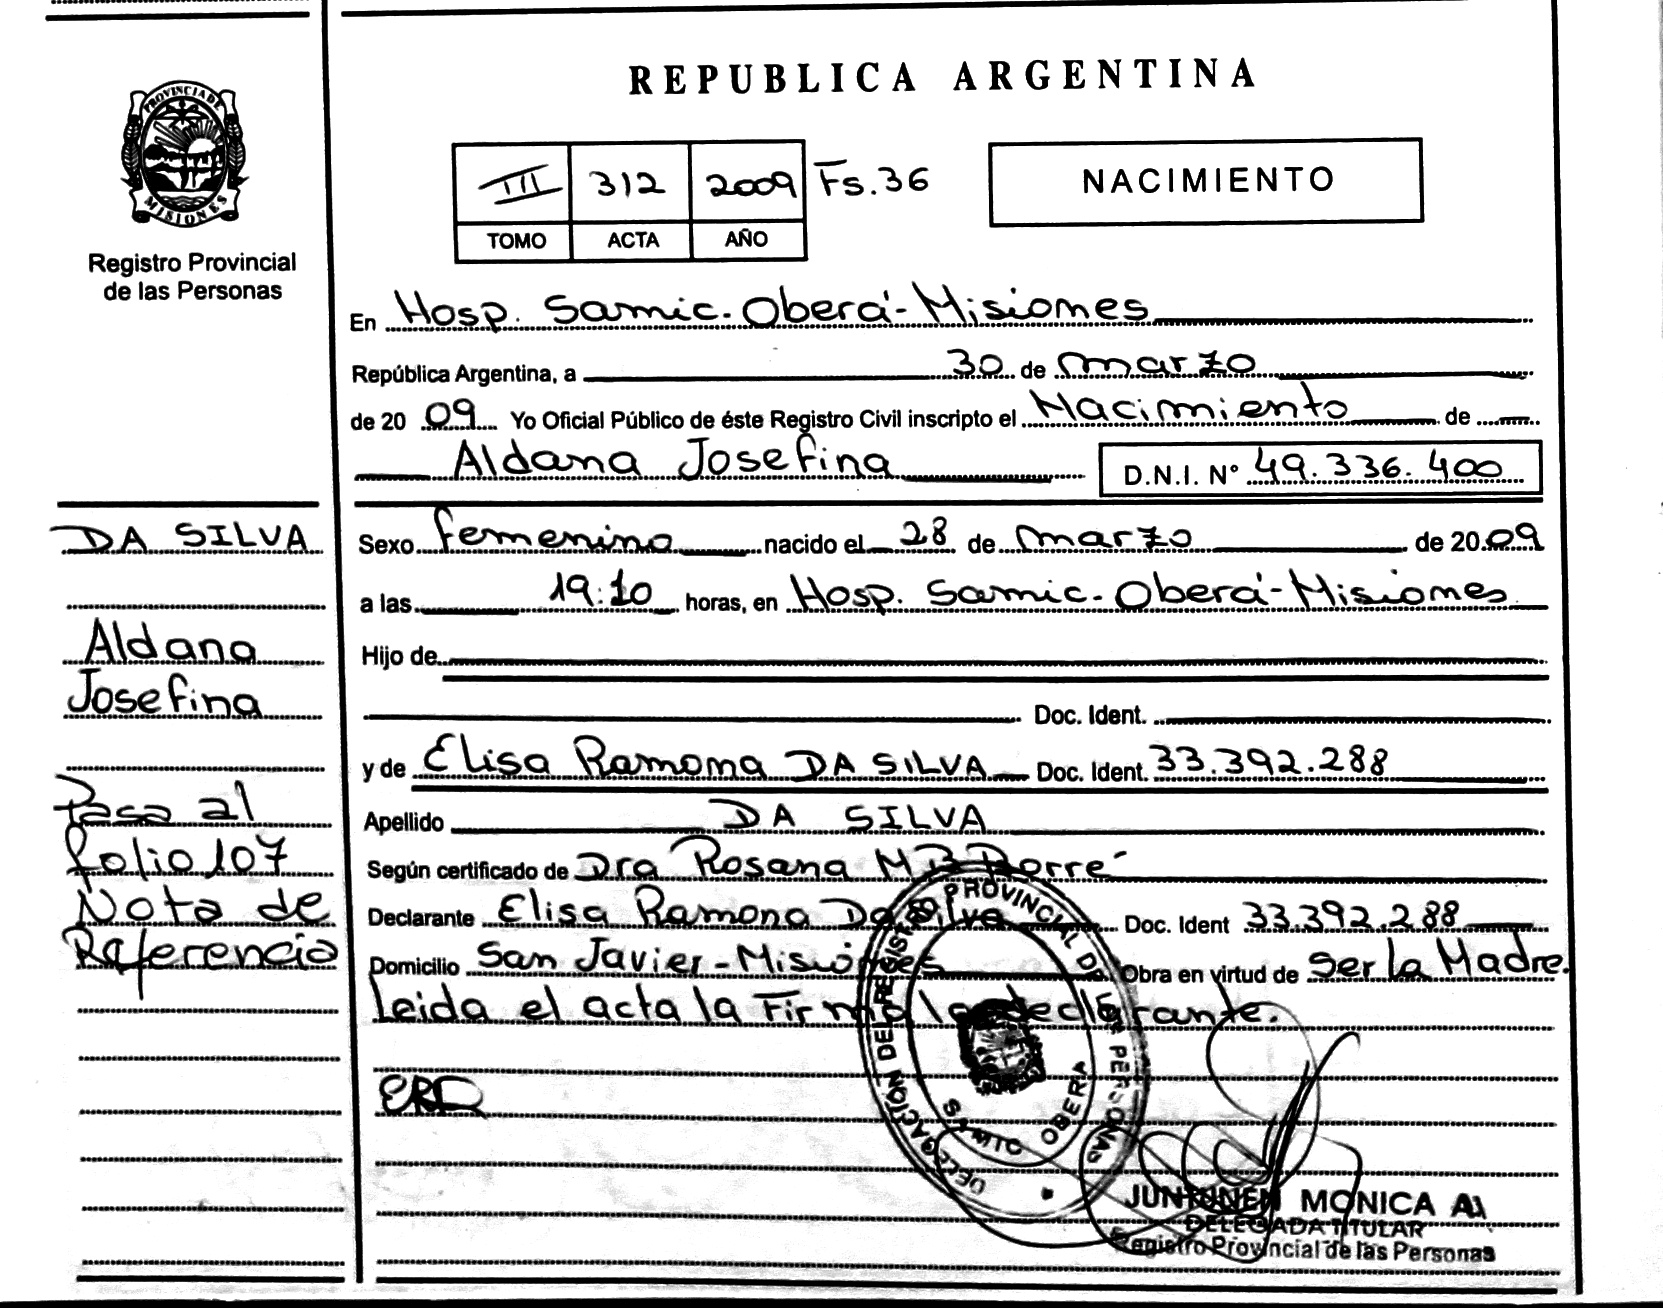 REPUBLICA ARGENTINA
PROVINCIA DE
MISIONES
Registro Provincial
de las Personas
III 312 2009 Fs.36
TOMO ACTA AÑO
NACIMIENTO
En Hosp. Samic. Oberá - Misiones
República Argentina, a 30 de marzo
de 20 09 Yo Oficial Público de éste Registro Civil inscripto el Nacimiento de
Aldana Josefina D.N.I. N° 49.336.400
DA SILVA
Aldana
Josefina
Pasa al
folio 107
Nota de
Referencia
Sexo femenino nacido el 28 de marzo de 20 09
a las 19:10 horas, en Hosp. Samic. Oberá - Misiones
Hijo de
Doc. Ident.
y de Elisa Ramona DA SILVA Doc. Ident. 33.392.288
Apellido DA SILVA
Según certificado de Dra Rosana M B Dorré
Declarante Elisa Ramona Da Silva Doc. Ident 33.392.288
Domicilio San Javier - Misiones Obra en virtud de Ser la Madre.
Leida el acta la Firma la declarante.
ERD
DELEGACION DEL REGISTRO PROVINCIAL DE LAS PERSONAS
SAMIC OBERA
JUNTUNEN MONICA A
DELEGADA TITULAR
Registro Provincial de las Personas